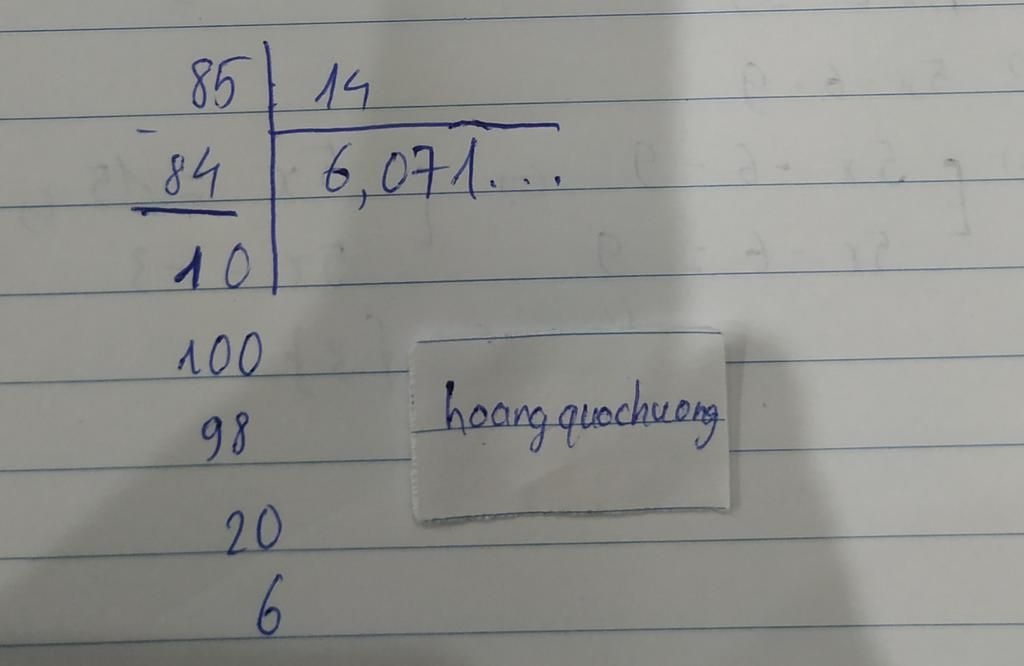 85 14
- 
84 6,071...
10
100
hoangquochuong
98
20
6